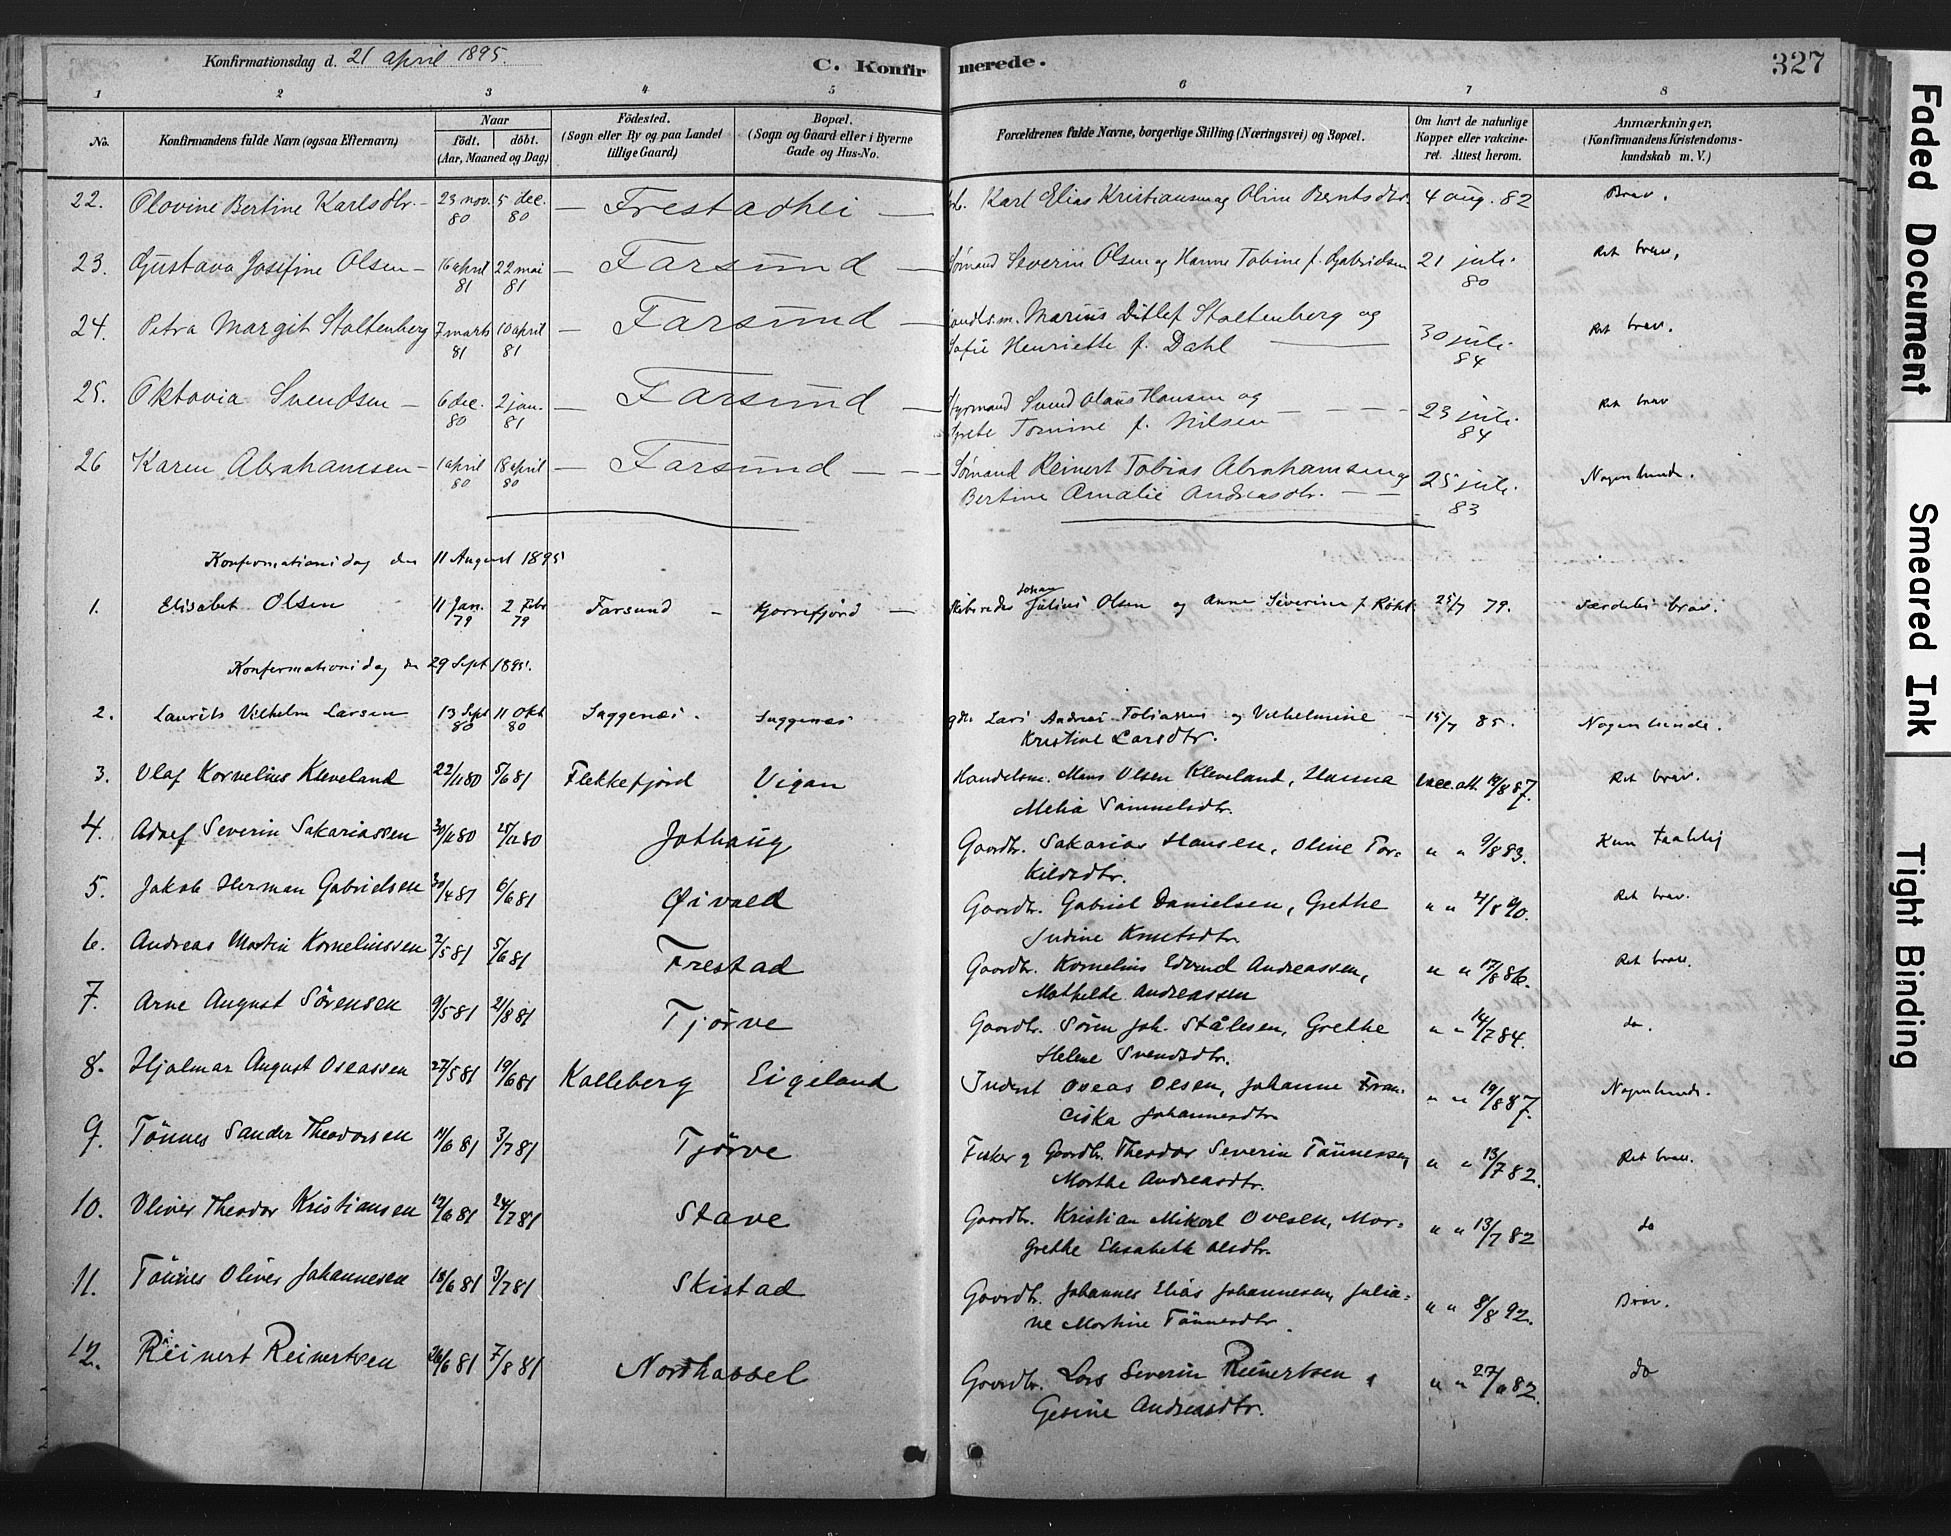 Konfirmationsdag d. 21 april 1895.
C. Konfirmerede.
327
1 2 3 4 5 6 7 8
No.
Konfirmandens fulde Navn (ogsaa Efternavn)
Naar
født. døbt.
(Aar, Maaned og Dag)
Fødested.
(Sogn eller By og paa Landet
tillige Gaard)
Bopæl.
(Sogn og Gaard eller i Byerne
Gade og Hus-No.
Forældrenes fulde Navne, borgerlige Stilling (Næringsvei) og Bopæl.
Om havt de naturlige
Kopper eller vakcine-
ret. Attest herom.
Anmærkninger,
(Konfirmandens Kristendoms-
kundskab m. V.)
22. Olovine Bertine Karlsdtr. 23 nov. 80 5 dec. 80 — Frestadhei — Karl Elias Kristiansen og Oline Berntsdtr. 4 aug. 82 Brav.
23. Gustava Josefine Olsen — 16 april 81 22 mai 81 — Farsund — Sømand Severin Olsen og Hanne Tobine f. Gabrielsen 21 juli 80 Ret brav,
24. Petra Margit Stoltenberg 7 marts 81 10 april 81 — Farsund — Marius Ditlef Stoltenberg og
Sofie Henriette f. Dahl — 30 juli 84 Ret brav.
25. Oktavia Svendsen — 6 dec. 80 2 jan. 81 — Farsund — Styrmand Svend Olaus Hansen og
Grete Tomine f. Nilsen — 23 juli 84 Ret brav
26 Karen Abrahamsen — 1 april 80 18 april 80 — Farsund — Sømand Reinert Tobias Abrahamsen og
Bertine Amalie Andreasdtr. — 25 juli 83 Nogenlunde.
Konfirmationsdag den 11 August 1895
1. Elisabet Olsen 11 Jan. 79 2 Febr 79 Farsund — Kjørrefjord — Skibsreder Johan Julius Olsen og Anne Severine f. 25/7 79. Særdeles brav.
Konfirmationsdag den 29 Sept 1895.
2. Laurits Vilhelm Larsen 13 Sept 80 11 Okt 80 Saggenæs. Saggenæs Lars Andreas Tobiassen og Vilhelmine
Kristine Larsdtr. 15/7 85. Nogenlunde.
3. Olaf Kornelius Kleveland 22/11 80 5/6 81 Flekkefjord Vigan Handelsm. Mons Olsen Kleveland, Hanna
Melia Samuelsdtr. Vacc. att. 19/8 87. Ret brav.
4. Adolf Severin Sakariassen 30/11 80 25/12 80 Jøthaug Gaardbr. Sakarias Hansen, Oline Tor-
kildsdtr. " " 9/8 83. Kun taalelig
5. Jakob Herman Gabrielsen 30/4 81 6/6 81 Øivold Gaardbr. Gabriel Danielsen, Grethe
Judine Knutsdtr " " 21/8 90. Ret brav.
6. Andreas Martin Korneliussen 2/5 81 5/6 81 Frestad Gaardbr. Kornelius Edvard Andreassen,
Mathilde Andreassen " " 17/8 86. Ret brav.
7. Arne August Sørensen 9/5 81 21/8 81 Tjørve Gaardbr. Søren Joh. Stålesen, Grethe
Helene Svendsdtr. " " 14/7 84. do.
8. Hjalmar August Oseassen 27/5 81 19/6 81 Kalleberg Eigeland Inderst Oseas Olsen, Johanne Fran-
ciska Johannesdtr " " 19/8 87. Nogenlunde.
9. Tønnes Sander Theodorsen 11/6 81 3/7 81 Tjørve Fisker og Gaardbr. Theodor Severin Tønnessen,
Marthe Andreasdtr. " " 13/7 82. Ret brav.
10. Oliver Theodor Kristiansen 12/6 81 24/7 81 Stave Gaardbr. Kristian Mikael Ovesen, Mar-
grethe Elisabeth Olsdtr. " " 13/7 82 do
11. Tønnes Oliver Johannesen 18/6 81 3/7 81 Skistad Gaardbr. Johannes Elias Johannesen, Julia-
ne Martine Tønnesdtr. " " 8/8 92. Brav.
12. Reinert Reinertsen 26/6 81 7/8 81 Nordhassel Gaardbr. Lars Severin Reinertsen,
Gesine Andreasdtr. " " 27/11 82. do
Faded Document
Smeared Ink
Tight Binding